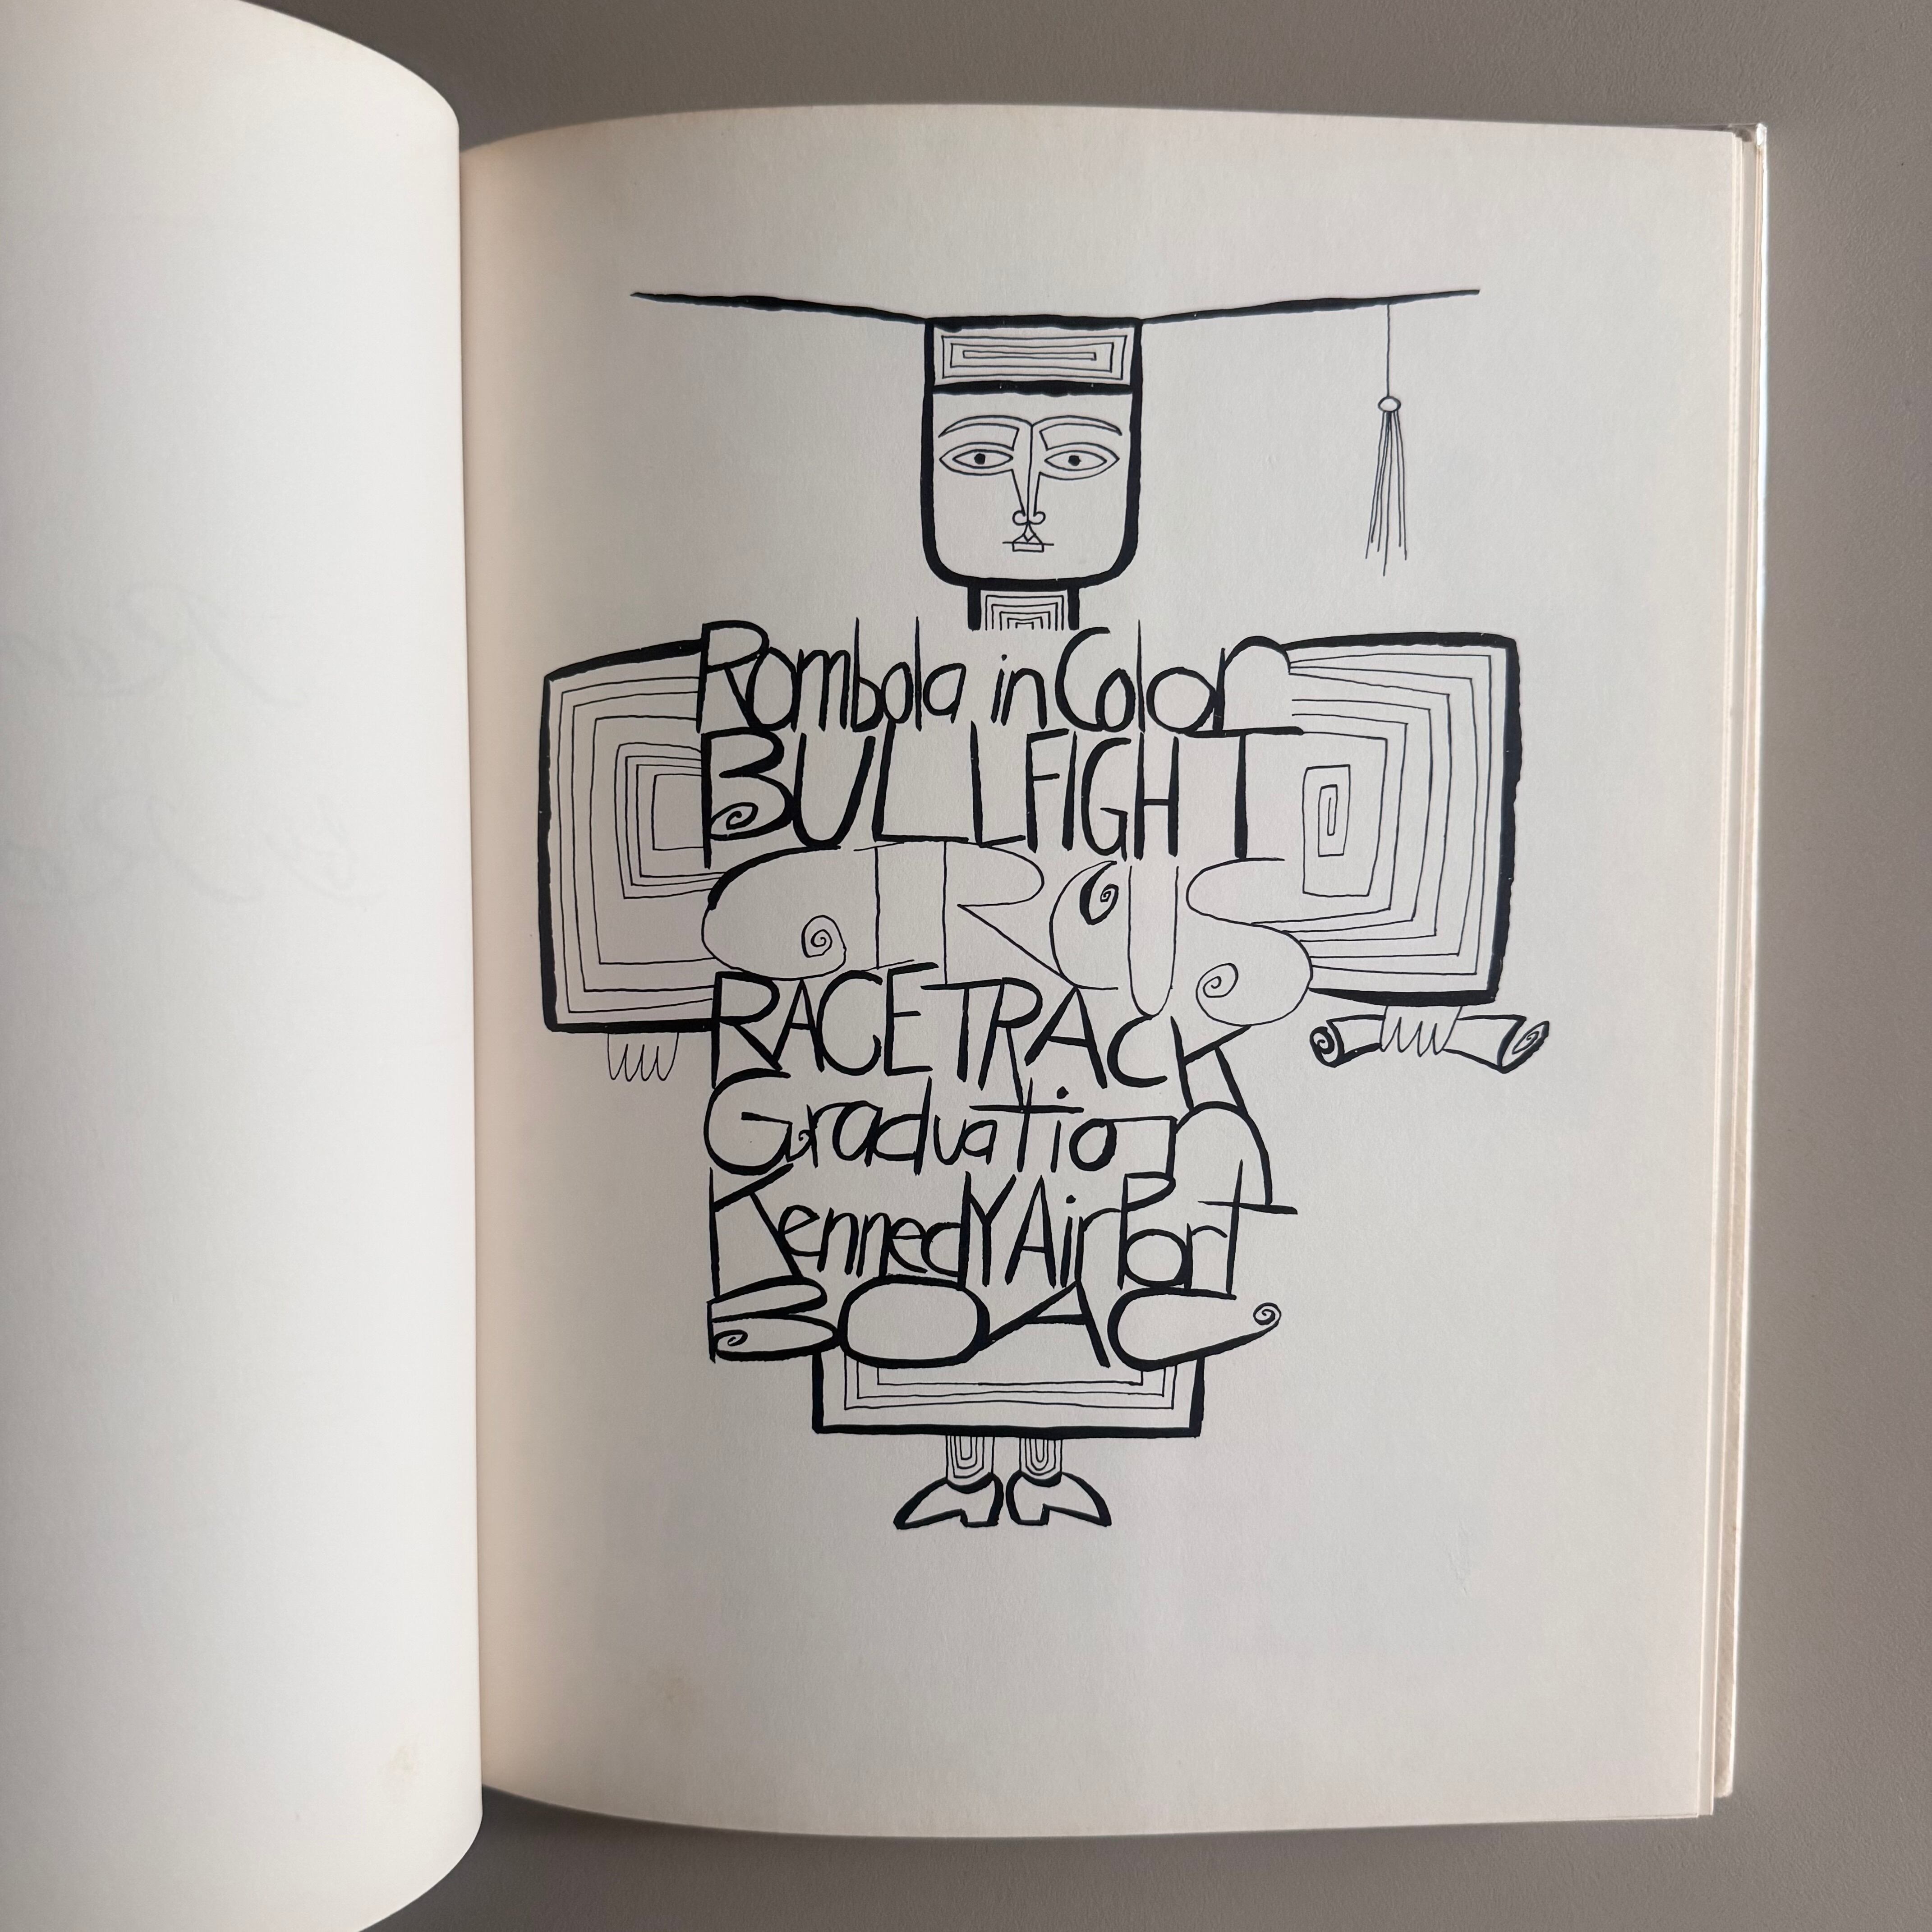 Rombola in Color
BULLFIGHT
CIRCUS
RACETRACK
Graduation
KennedY AirPort
BOAC